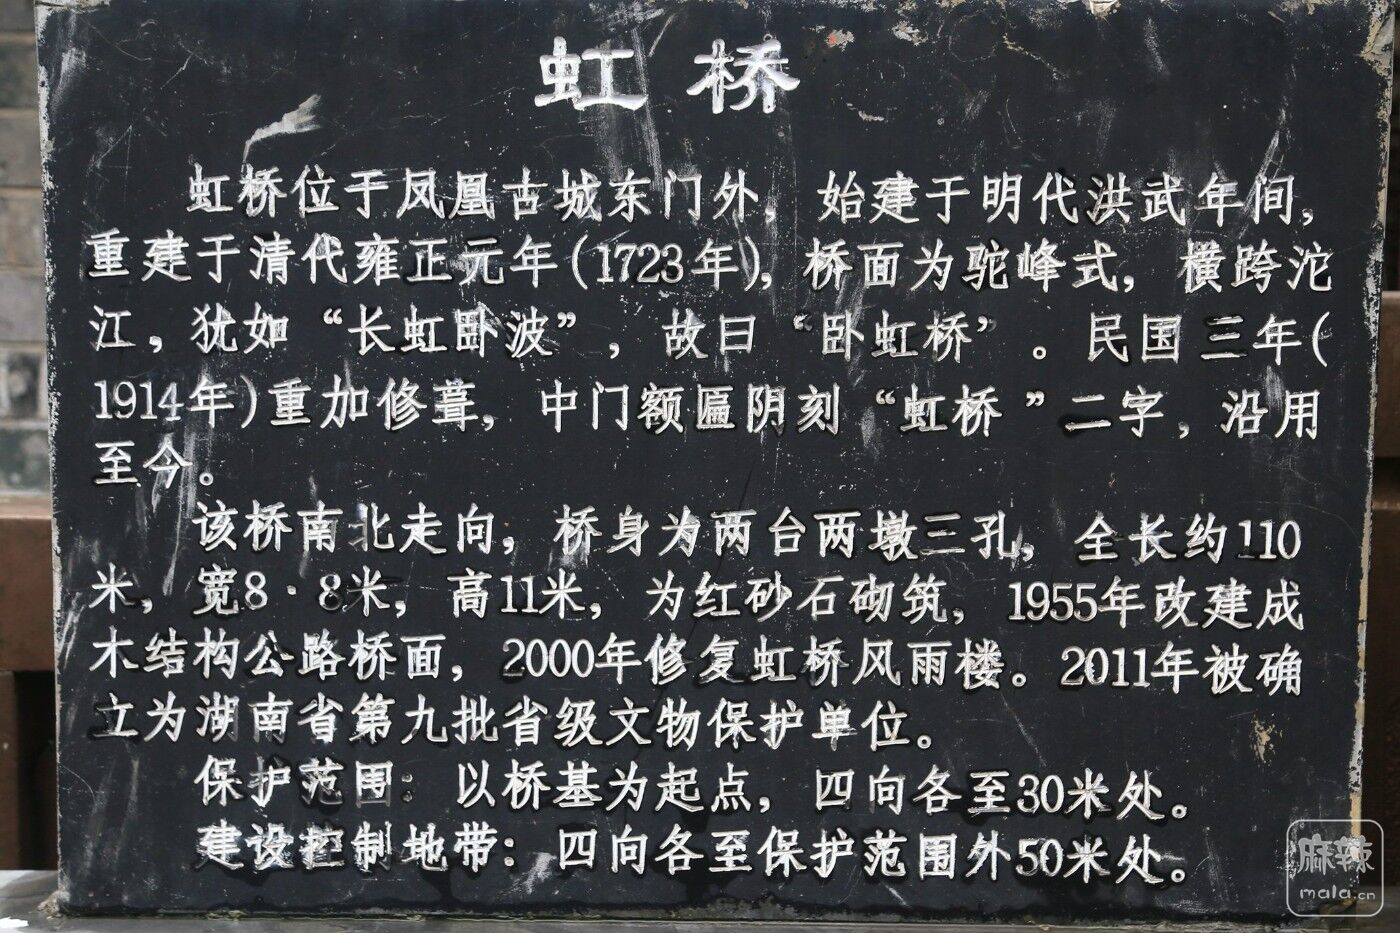 虹桥
虹桥位于凤凰古城东门外，始建于明代洪武年间，
重建于清代雍正元年(1723年)，桥面为驼峰式，横跨沱
江，犹如“长虹卧波”，故曰“卧虹桥’。民国三年(
1914年)重加修葺，中门额匾阴刻“虹桥”二字，沿用
至今。
该桥南北走向，桥身为两台两墩三孔，全长约110
米，宽8·8米，高11米，为红砂石砌筑，1955年改建成
木结构公路桥面，2000年修复虹桥风雨楼。2011年被确
立为湖南省第九批省级文物保护单位。
保护范围：以桥基为起点，四向各至30米处。
建设控制地带：四向各至保护范围外50米处。
麻辣
mala.cn